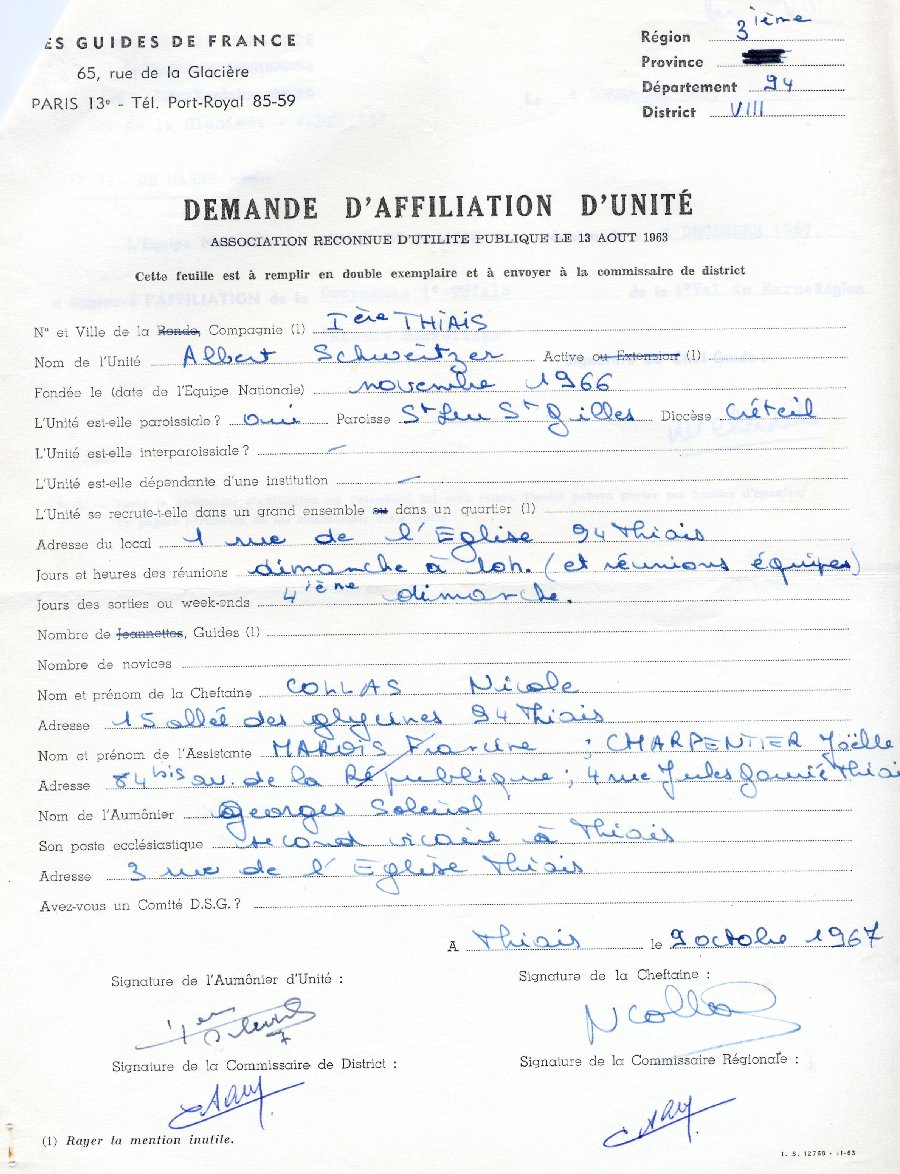 ES GUIDES DE FRANCE
65, rue de la Glacière
PARIS 13e - Tél. Port-Royal 85-59
Région 3ième
Province
Département 94
District VIII
DEMANDE D'AFFILIATION D'UNITÉ
ASSOCIATION RECONNUE D'UTILITE PUBLIQUE LE 13 AOUT 1963
Cette feuille est à remplir en double exemplaire et à envoyer à la commissaire de district
N° et Ville de la Ronde, Compagnie (1) Ière THIAIS
Nom de l'Unité Albert Schweitzer Active ou Extension (1)
Fondée le (date de l'Equipe Nationale) novembre 1966
L'Unité est-elle paroissiale ? oui Paroisse St Leu St Gilles Diocèse Créteil
L'Unité est-elle interparoissiale ? –
L'Unité est-elle dépendante d'une institution –
L'Unité se recrute-t-elle dans un grand ensemble ou dans un quartier (1)
Adresse du local 1 rue de l'Eglise 94 Thiais
Jours et heures des réunions dimanche à 10h. (et réunions équipes)
Jours des sorties ou week-ends 4ième dimanche.
Nombre de Jeannettes, Guides (1)
Nombre de novices
Nom et prénom de la Cheftaine COLLAS Nicole
Adresse 15 allée des glycines 94 Thiais
Nom et prénom de l'Assistante MAROIS Francine ; CHARPENTIER Joëlle
Adresse 84 bis av. de la République ; 4 rue Jules Thiais
Nom de l'Aumônier Georges
Son poste ecclésiastique second vicaire à Thiais
Adresse 3 rue de l'Eglise Thiais
Avez-vous un Comité D.S.G. ?
A Thiais le 9 octobre 1967
Signature de l'Aumônier d'Unité :
Signature de la Cheftaine :
NCollas
Signature de la Commissaire de District :
Signature de la Commissaire Régionale :
(1) Rayer la mention inutile.
I. S. 12768 - 11-63